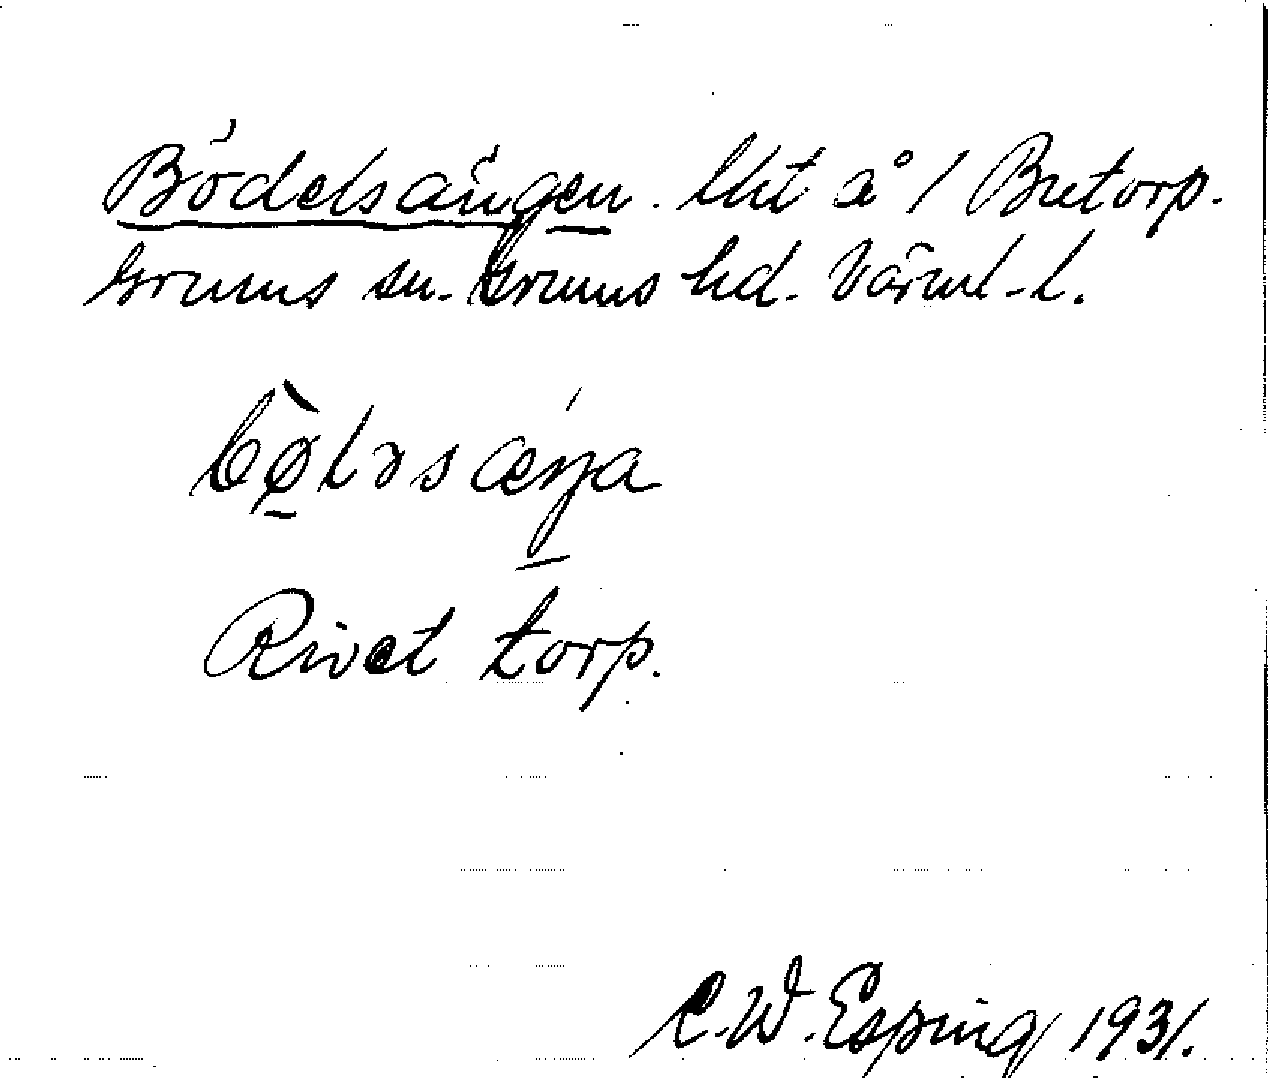 Bödelsängen. lht å 1 Bretorp.
Grums sn. Grums hd. Värml-l.
bø̱ləsæŋa
Rivet torp.
C.W. Esping 1931.